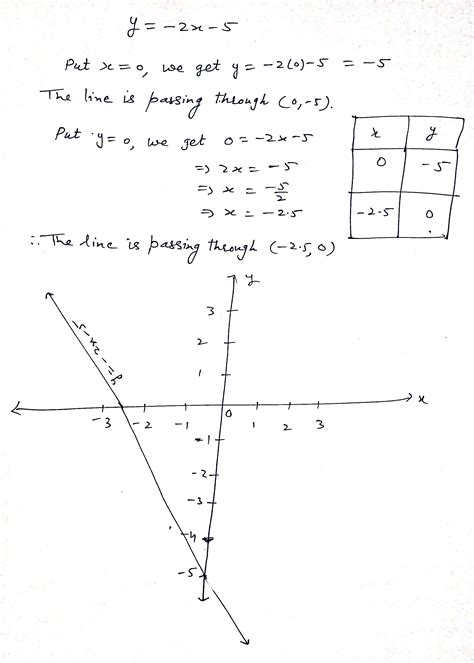 y = -2x - 5
Put x = 0, we get y = -2(0)-5 = -5
The line is passing through (0,-5).
Put y = 0, we get 0 = -2x-5
⇒ 2x = -5
⇒ x = -5/2
⇒ x = -2.5
x y
0 -5
-2.5 0
∴ The line is passing through (-2.5, 0)
y
3
2
1
y = -2x-5
x
-3 -2 -1 0 1 2 3
-1
-2
-3
-4
-5